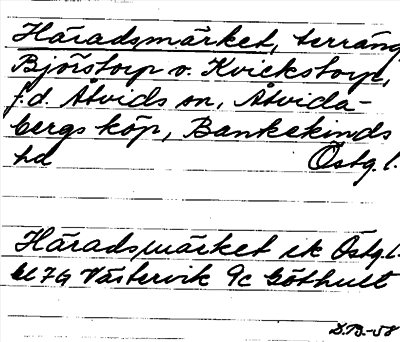 Häradsmärket, terräng
Björstorp o. Kvickstorp,
f.d. Åtvids sn, Åtvida-
bergs köp, Bankekinds
hd Östg.l.
Häradsmärket ek Östg.l.
bl 7G Västervik 9c Göthult
D.B.-58